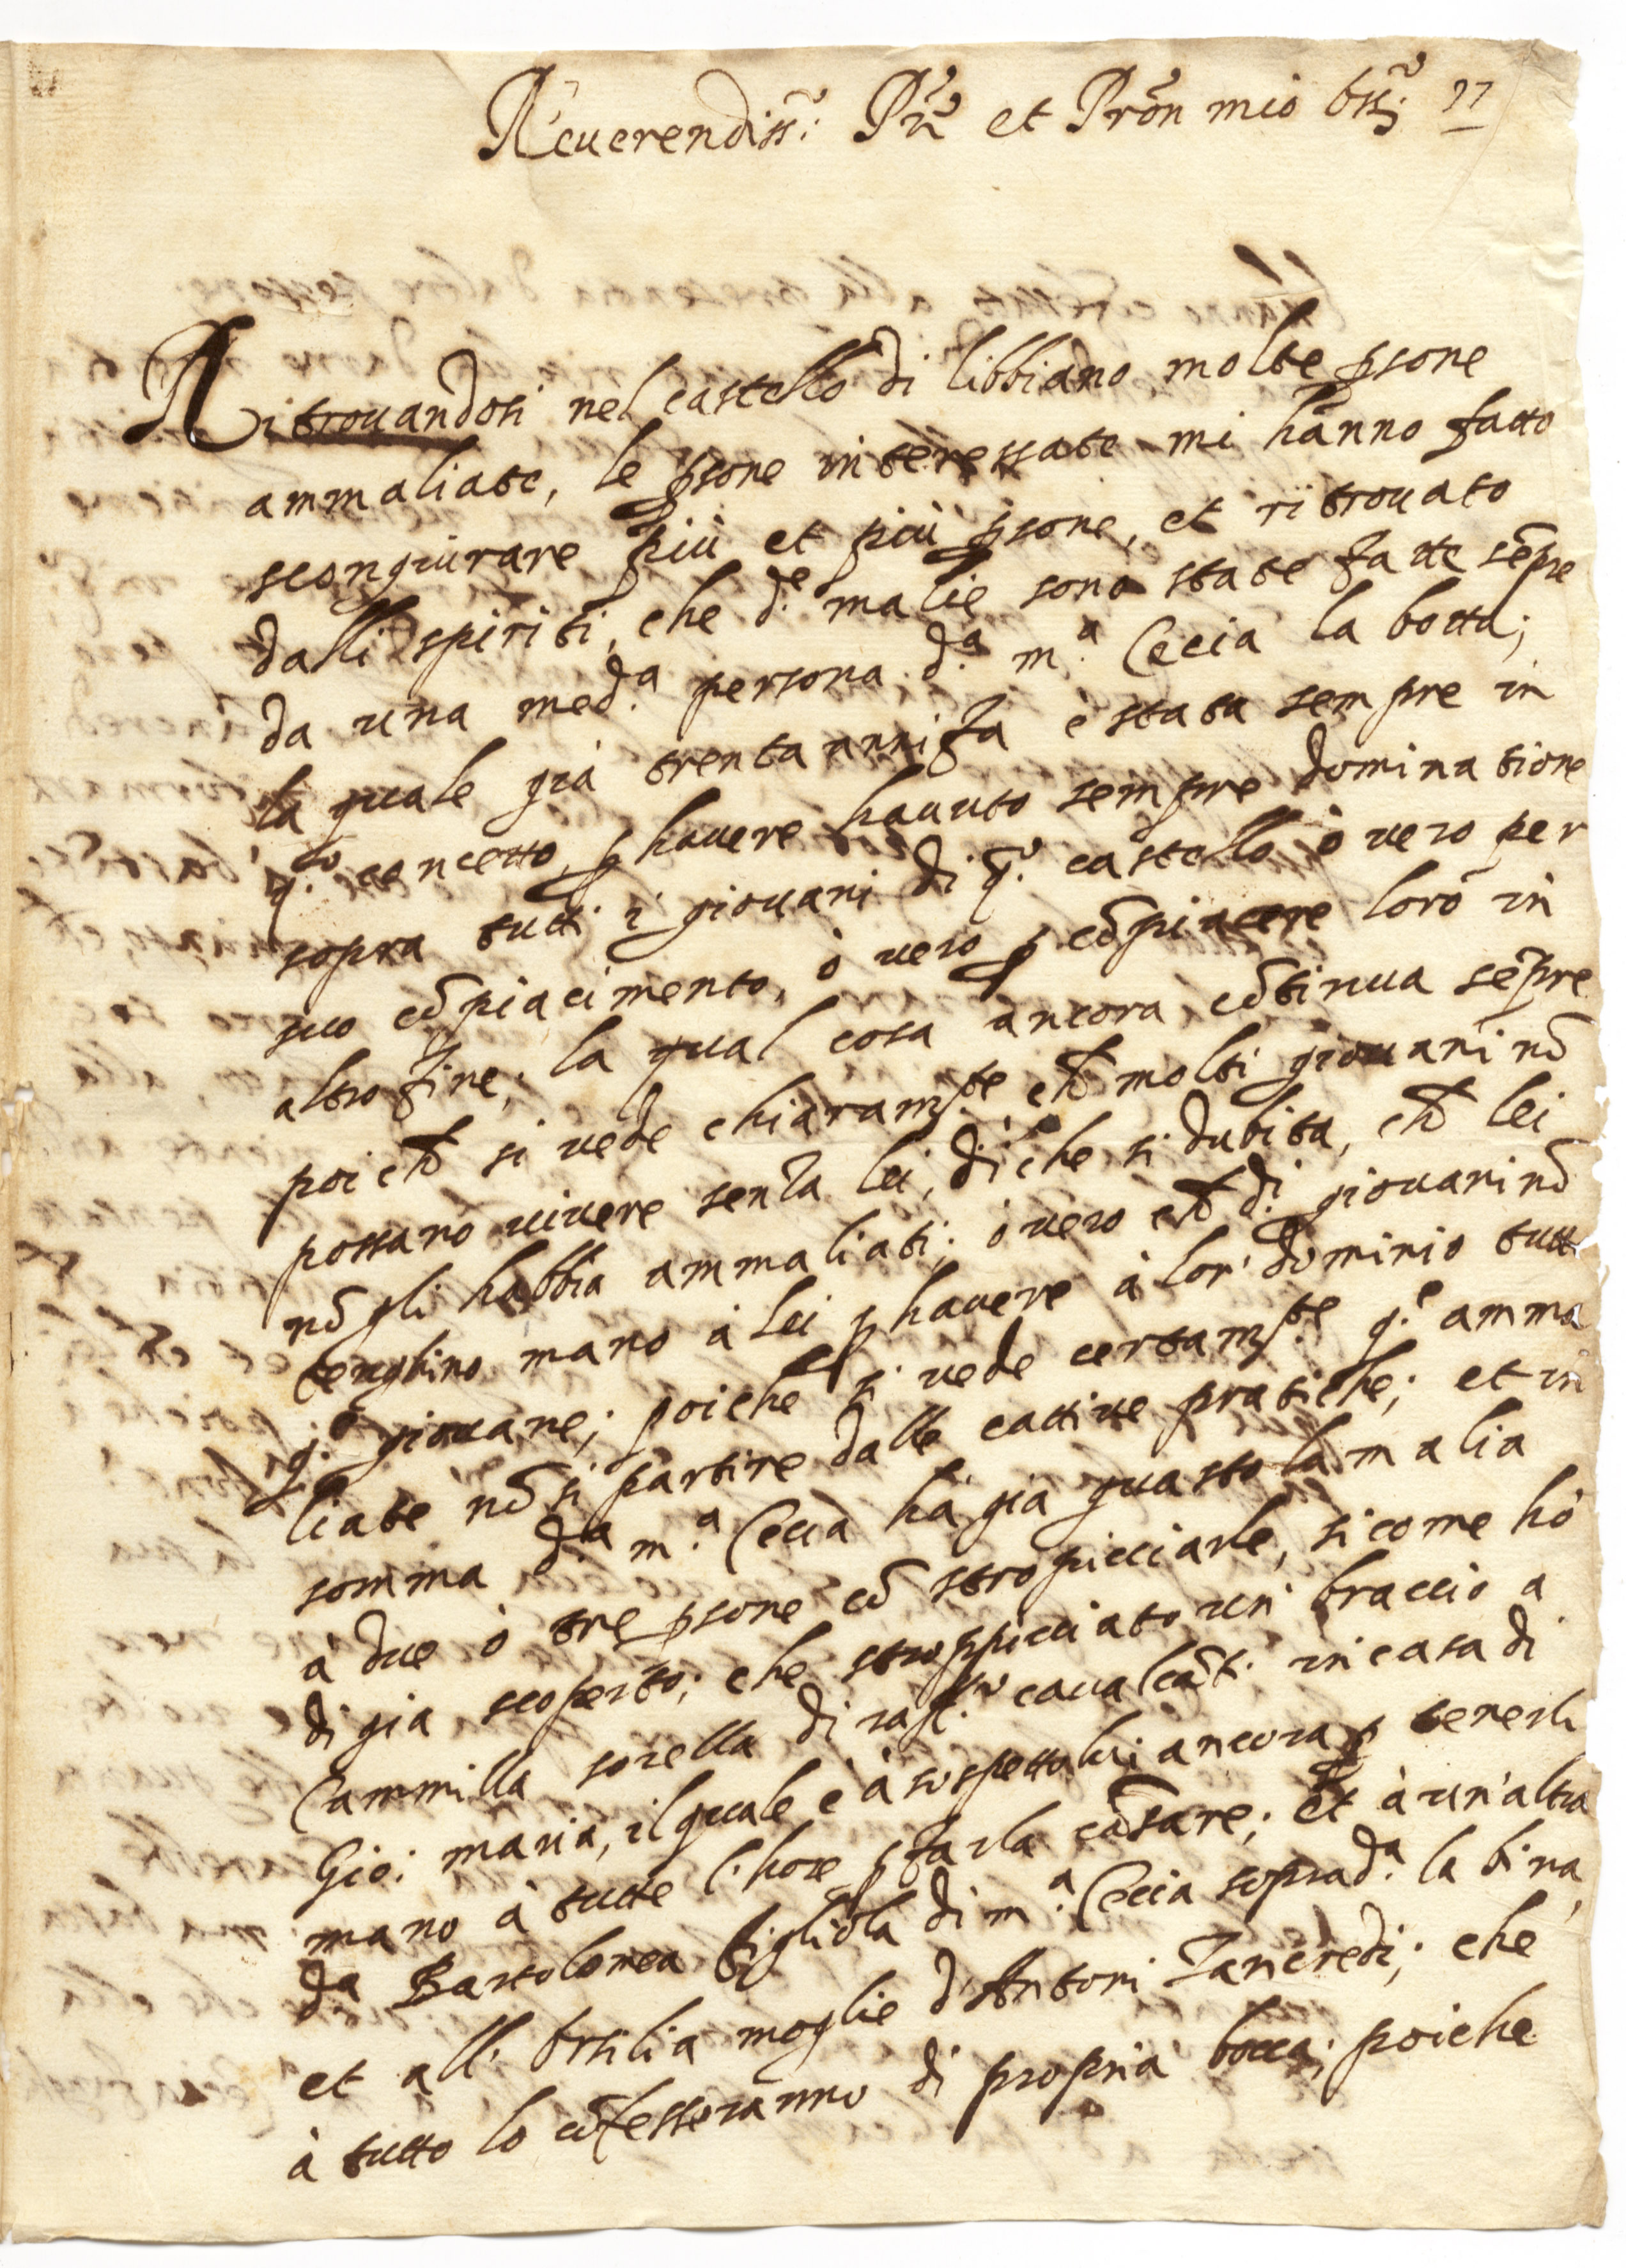 Reuerendiss.º Pre et Pron mio oss.º 77
Ritrouandosi nel castello di libbiano molte psone
ammaliate, le psone interessate mi hanno fatto
scongiurare più et più psone, et ritrouato
dalli spiriti, che d.e malie sono state fatte sẽpre
da una med.a persona d.a m.a Cecia la botta;
la quale già trenta anni fà è stata sempre in
q.to concetto, p hauere hauuto sempre dominatione
sopra tutti i giouani di q.º castello ò uero per
suo cõpiacimento, ò uero p cõpiacere loro in
altro fine; la qual cosa ancora cõtinua sẽpre
poi ch̃ si uede chiaram.te, ch̃ molti giouani nõ
possano uiuere senza lei, di che si dubita, ch̃ lei
nõ gli habbia ammaliati; ò uero ch̃ d.i giouani nõ
tenghino mano à lei p hauere à lor' dominio tutte
q.e giouane; poiche si uede certam.te q.e amma
liate nõ si partire dalle cattiue pratiche; et in
somma d.a m.a Cecia hà già guasto la malia
à due ò tre psone cõ stropicciarle, si come hò
di già scoperto; che stroppicciato un' braccio a
Cammilla sorella di raf.lo caualcãti in casa di
Gio: maria, il quale è à sospetto lui ancora p tenerli
mano à tutte l'hore p farla cãsare; et à un'altra
d.a Bartolomea figliola di m.a Cecia soprad.a la bina,
et all' Ersilia moglie d'Antoni Zancredi; che
à tutto lo cõfesseranno di propria bocca; poiche